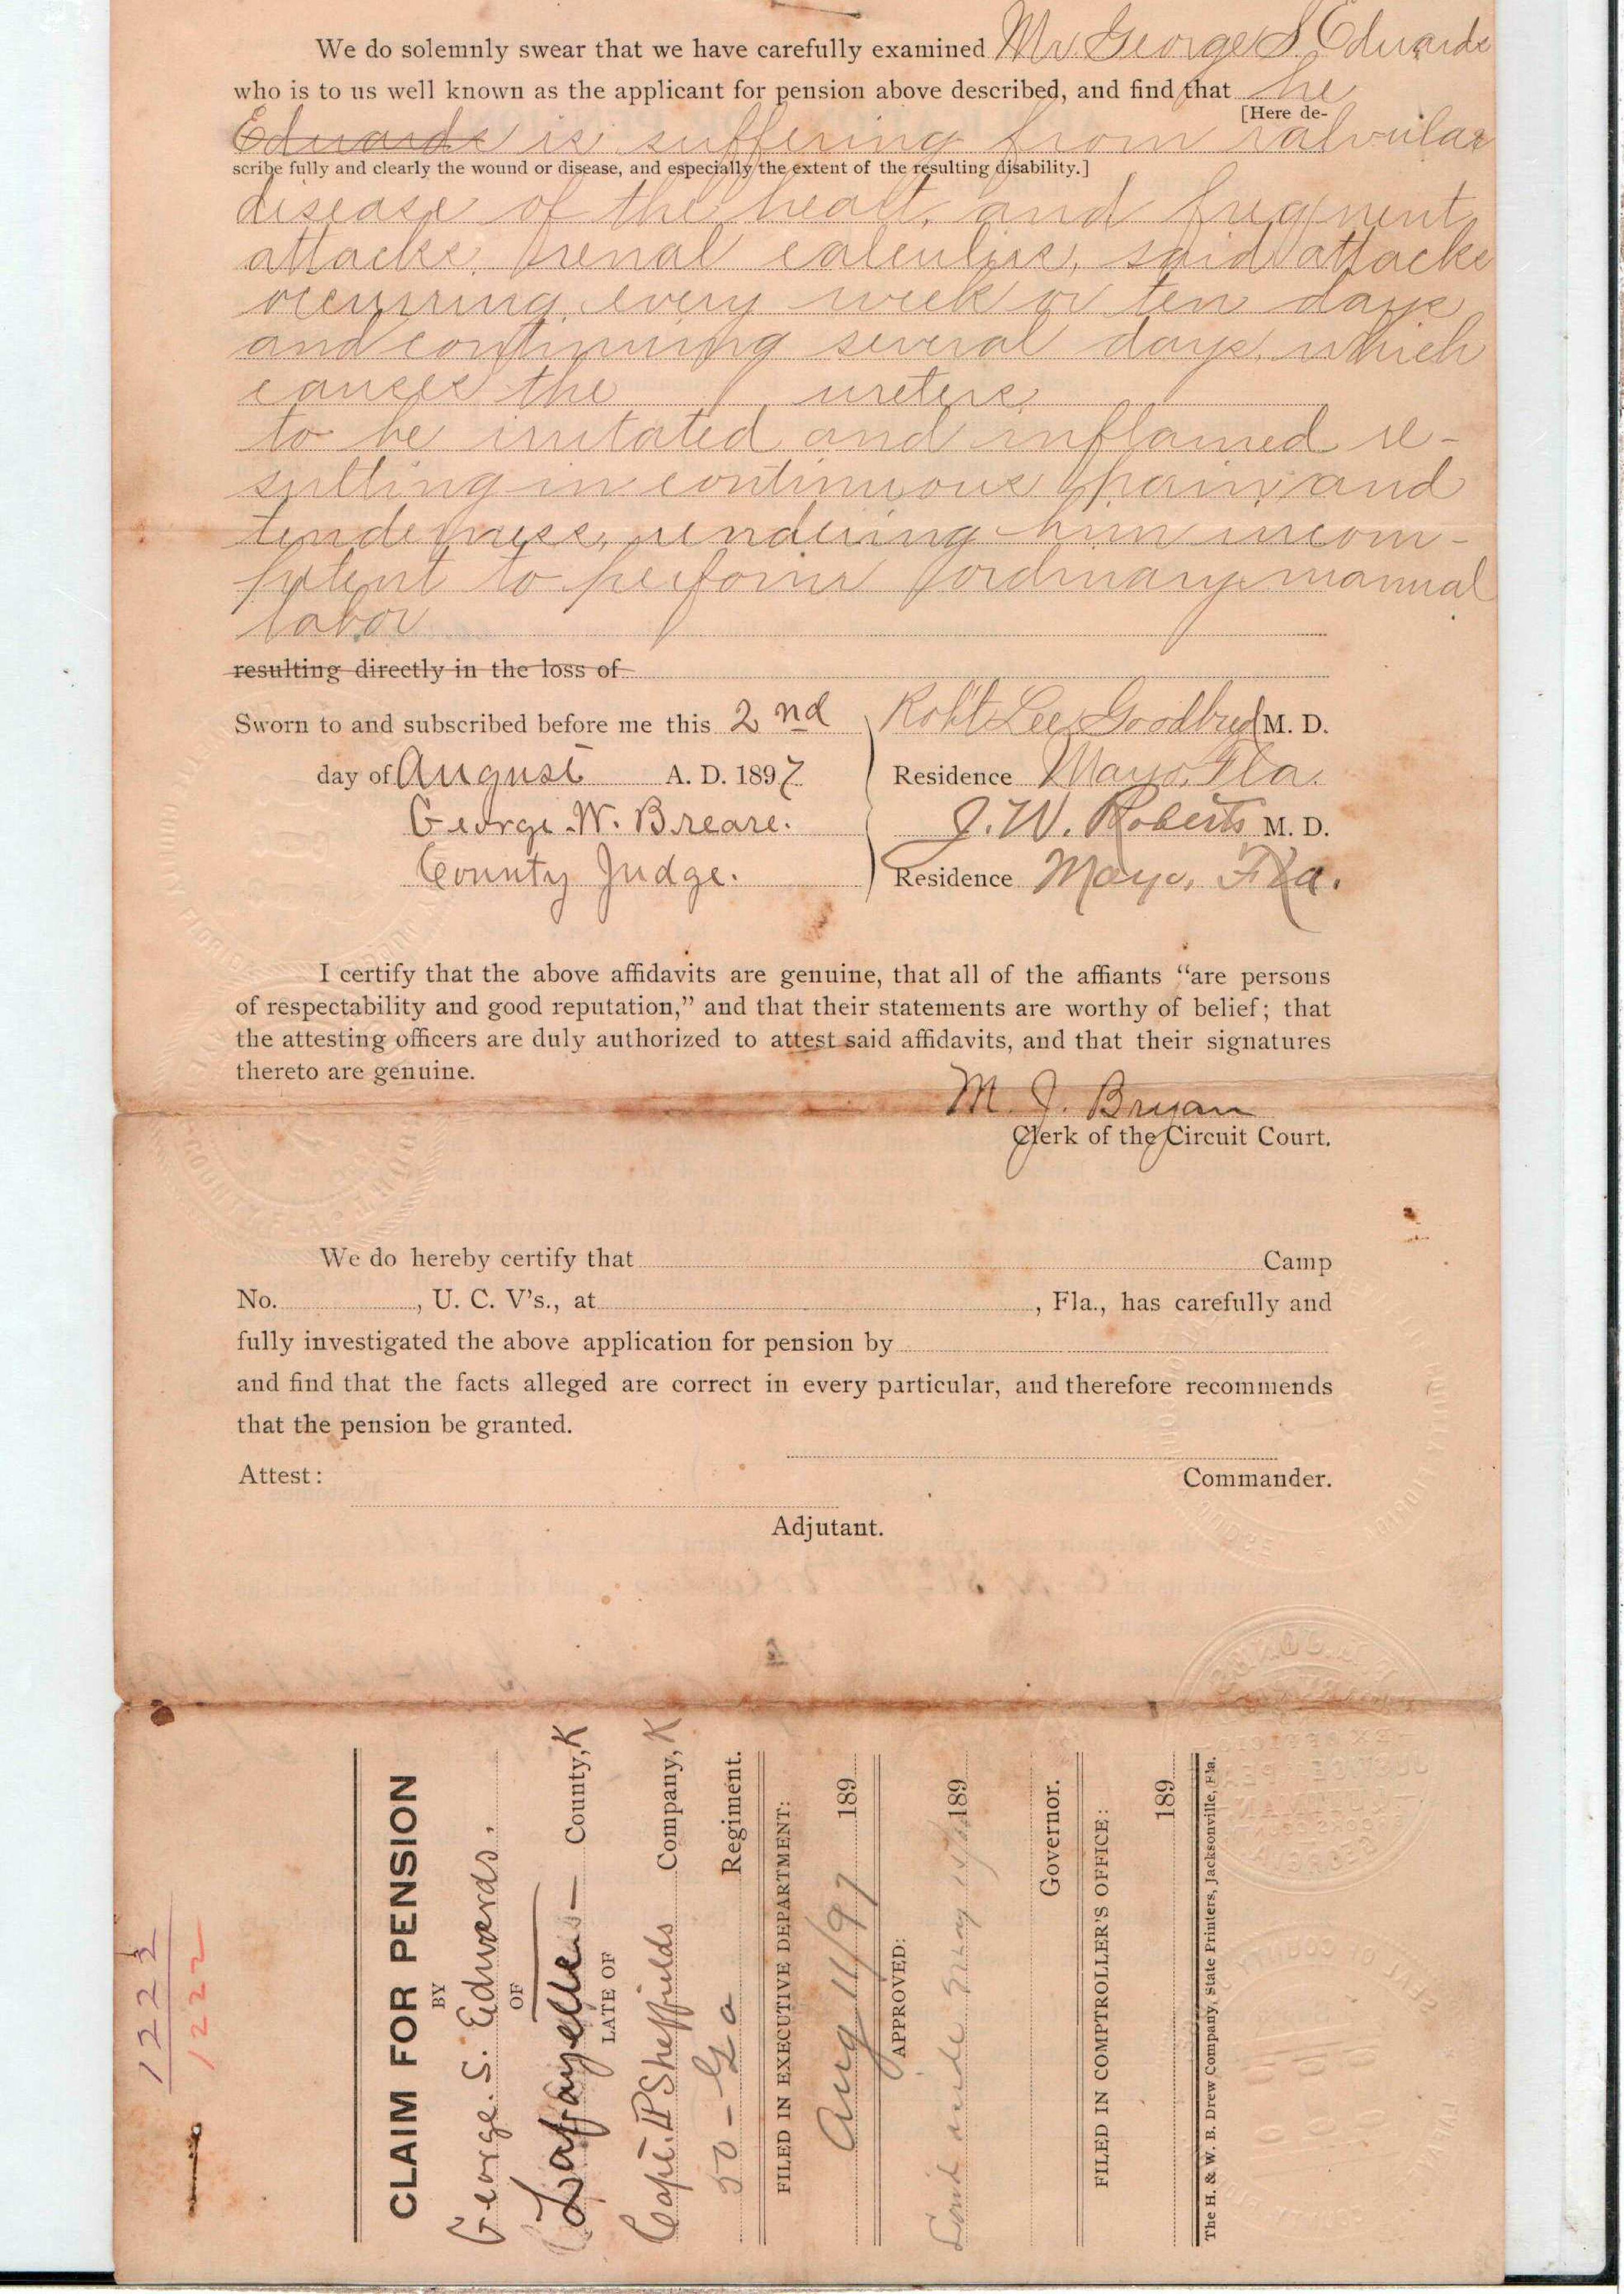 We do solemnly swear that we have carefully examined Mr George S Edwards
who is to us well known as the applicant for pension above described, and find that he
[Here de-
Edwards is suffering from valvular
scribe fully and clearly the wound or disease, and especially the extent of the resulting disability.]
disease of the heart, and frequent
attacks renal calculus, said attacks
occurring every week or ten days
and continuing several days, which
causes the ureters
to be irritated and inflamed re-
sulting in continuous pain and
tenderness, rendering him incom-
petent to perform ordinary manual
labor
resulting directly in the loss of
Sworn to and subscribed before me this 2nd Robt Lee Goodbred M. D.
day of August A. D. 1897 Residence Mayo, Fla.
George W. Breare. J. W. Roberts M. D.
County Judge. Residence Mayo, Fla.
I certify that the above affidavits are genuine, that all of the affiants “are persons
of respectability and good reputation,” and that their statements are worthy of belief; that
the attesting officers are duly authorized to attest said affidavits, and that their signatures
thereto are genuine.
M. J. Bryan
Clerk of the Circuit Court.
We do hereby certify that Camp
No. , U. C. V's., at , Fla., has carefully and
fully investigated the above application for pension by
and find that the facts alleged are correct in every particular, and therefore recommends
that the pension be granted.
Commander.
Attest:
Adjutant.
1222
1222
CLAIM FOR PENSION
BY
George. S. Edwards,
OF
Lafayette County, K
LATE OF
Capt. Sheffields Company, K
50 - Ga Regiment.
FILED IN EXECUTIVE DEPARTMENT:
Aug 11/97 189
APPROVED:
189
Governor.
FILED IN COMPTROLLER'S OFFICE:
189
The H. & W. B. Drew Company, State Printers, Jacksonville, Fla.